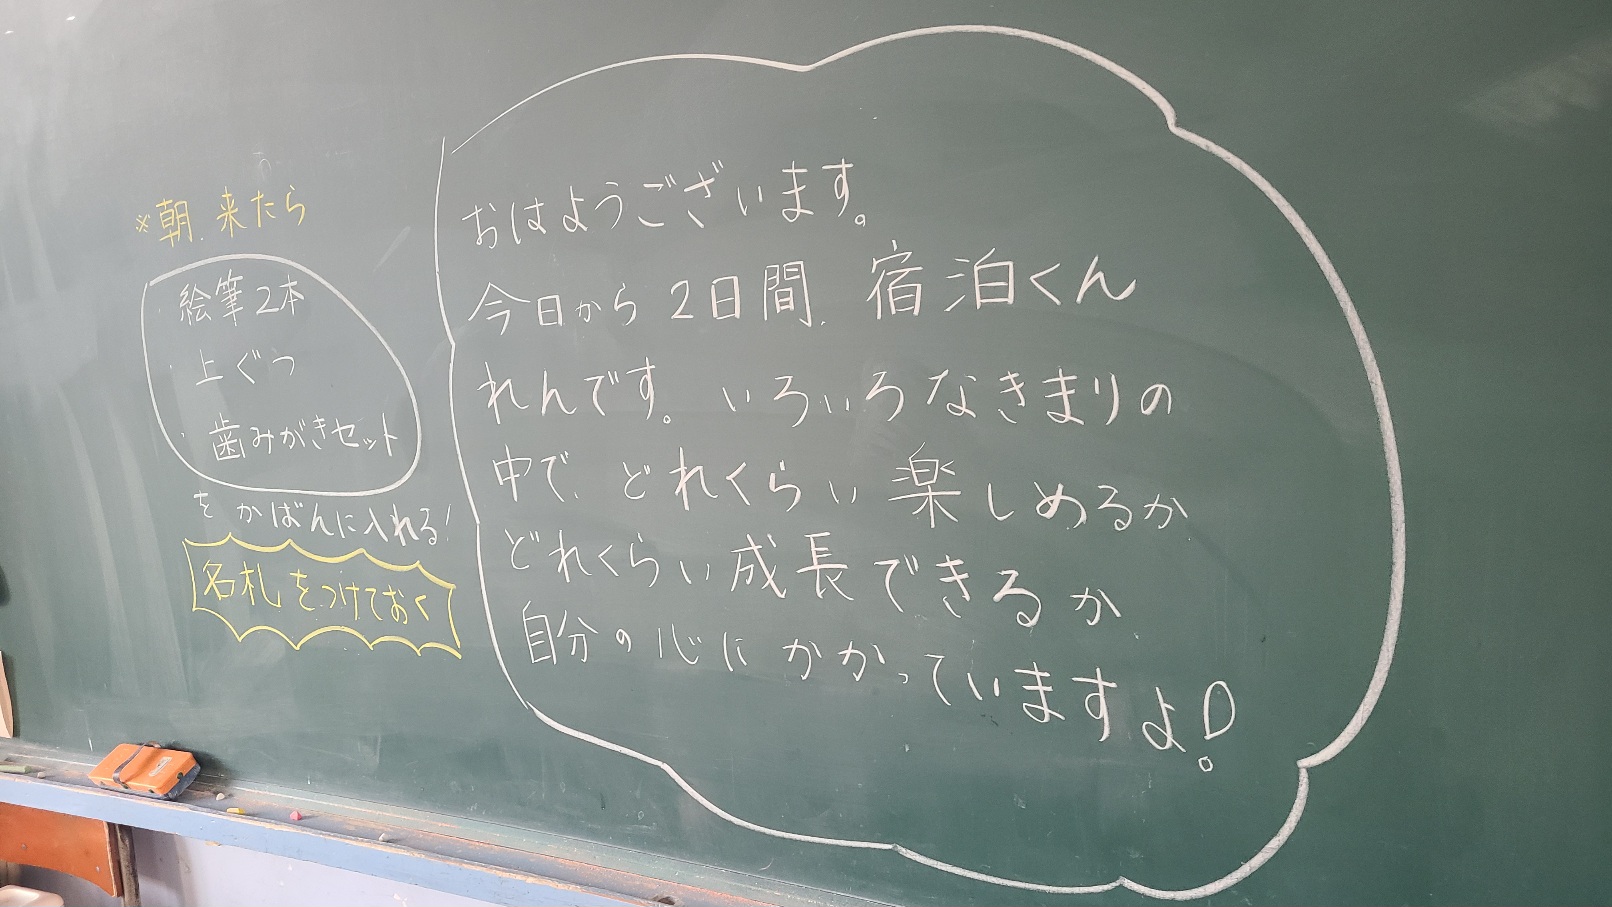 ※朝、来たら
・絵筆2本
・上ぐつ
・歯みがきセット
をかばんに入れる!
名札をつけておく
おはようございます。
今日から2日間、宿泊くん
れんです。いろいろなきまりの
中で、どれくらい楽しめるか
どれくらい成長できるか
自分の心にかかっていますよ!